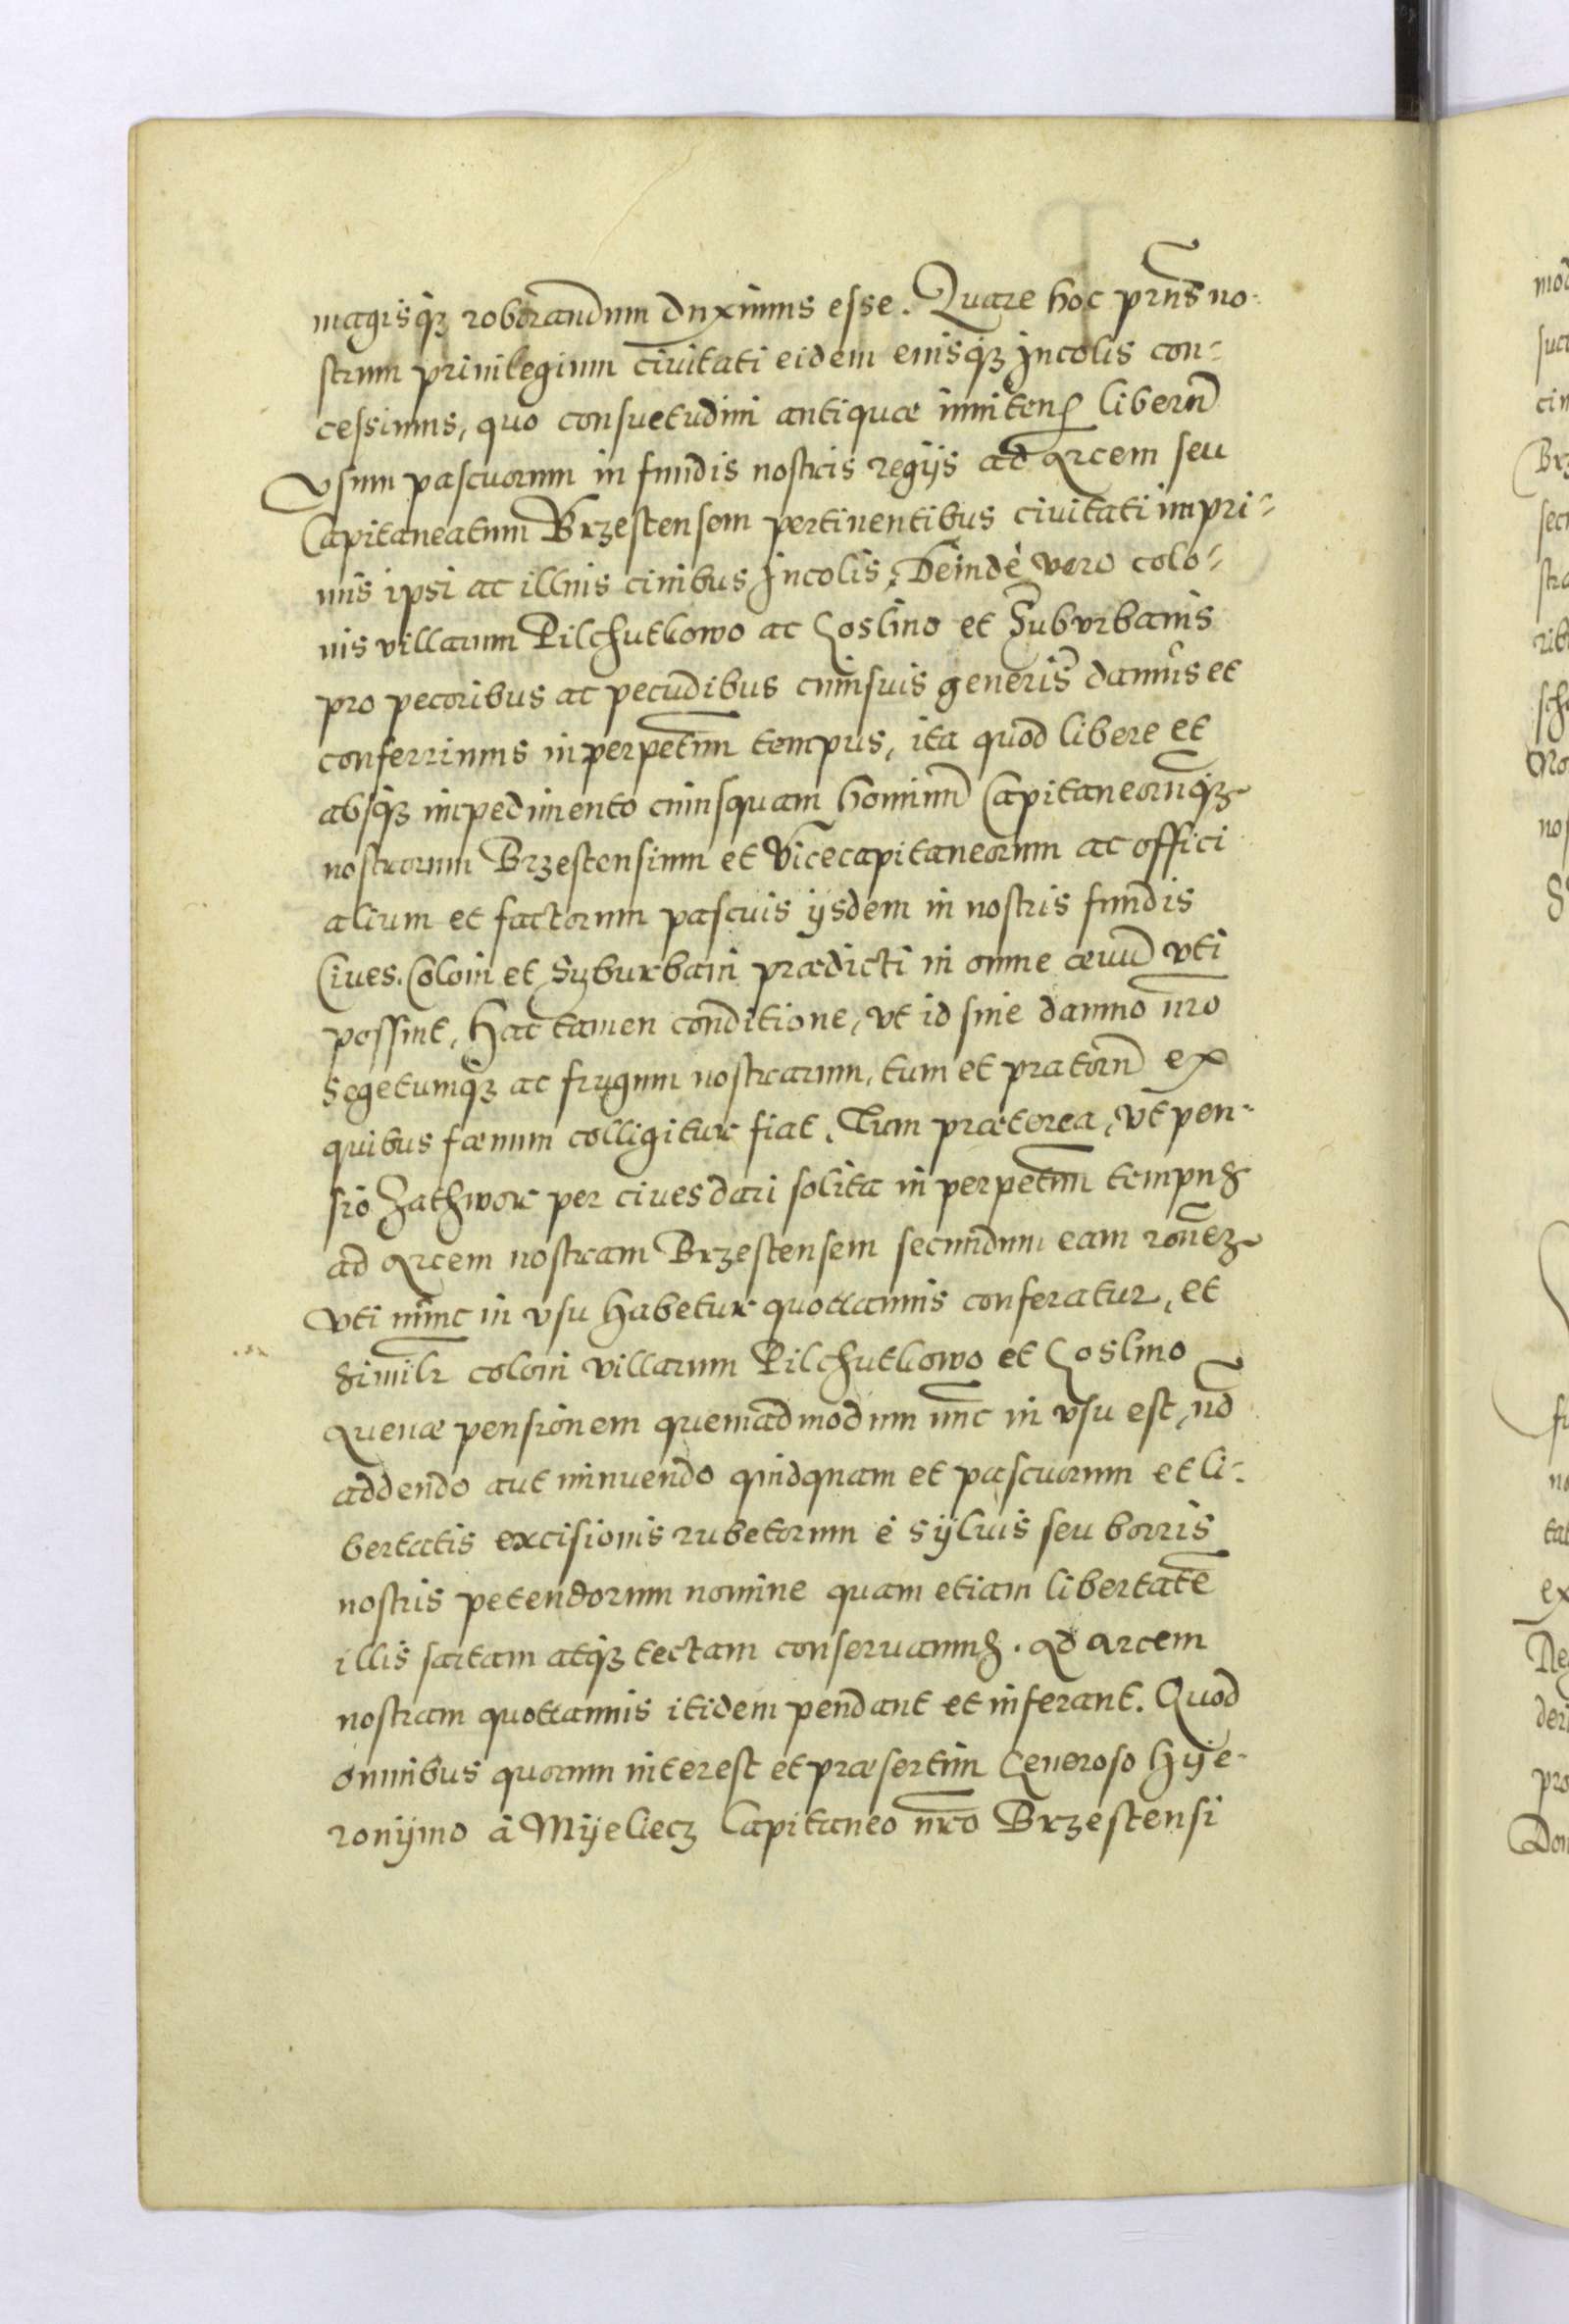 magisq̃ȝ roborandum duximus esse. Quare hoc prn̄s no-
strum priuilegium ciuitati eidem eiusq̃ȝ Incolis con-
cessimus, quo consuetudini antiquæ inniten̄ liberū
vsum pascuorum in fundis nostris regijs ad Arcem seu
Capitaneatum Brzestensem pertinentibus ciuitati impri-
mis ipsi ac illius ciuibus Incolis, Deindè vero colo-
nis villarum Pilchutkowo ac Coslino et Suburbanis
pro pecoribus ac pecudibus cuiusuis generis damus et
conferrimus in perpetuū tempus, ita quod libere et
absq̃ȝ impedimento cuiusquam hominū Capitaneorūq̃ȝ
nostrorum Brzestensium et Vicecapitaneorum ac offici
alium et factorum pascuis ijsdem in nostris fundis
Ciues. Coloni et Suburbani prædicti in omne æuū vti
possint, Hac tamen conditione, vt id sine damno nr̄o
Segetumq̃ȝ ac frugum nostrarum, tum et pratorū ex
quibus fænum colligitur fiat. Tum præterea, vt pen-
sio Zathwor per ciues dari solita in perpetuū tempus
ad Arcem nostram Brzestensem secundum eam ronēȝ
vti nunc in vsu habetur quottannis conferatur, et
Similr coloni villarum Pilchutkowo et Coslino
Auenæ pensionem quemadmodum nūc in vsu est, nō
addendo aut minuendo quidquam et pascuorum et li-
bertatis excisionis rubetorum è syluis seu borris
nostris petendorum nomine quam etiam libertatē
illis sartam atq̃ȝ tectam conseruamus. Ad Arcem
nostram quottannis itidem pendant et inferant. Quod
omnibus quorum interest et præsertim Generoso Hye-
ronymo à Myeliecz Capitaneo nr̄o Brzestensi